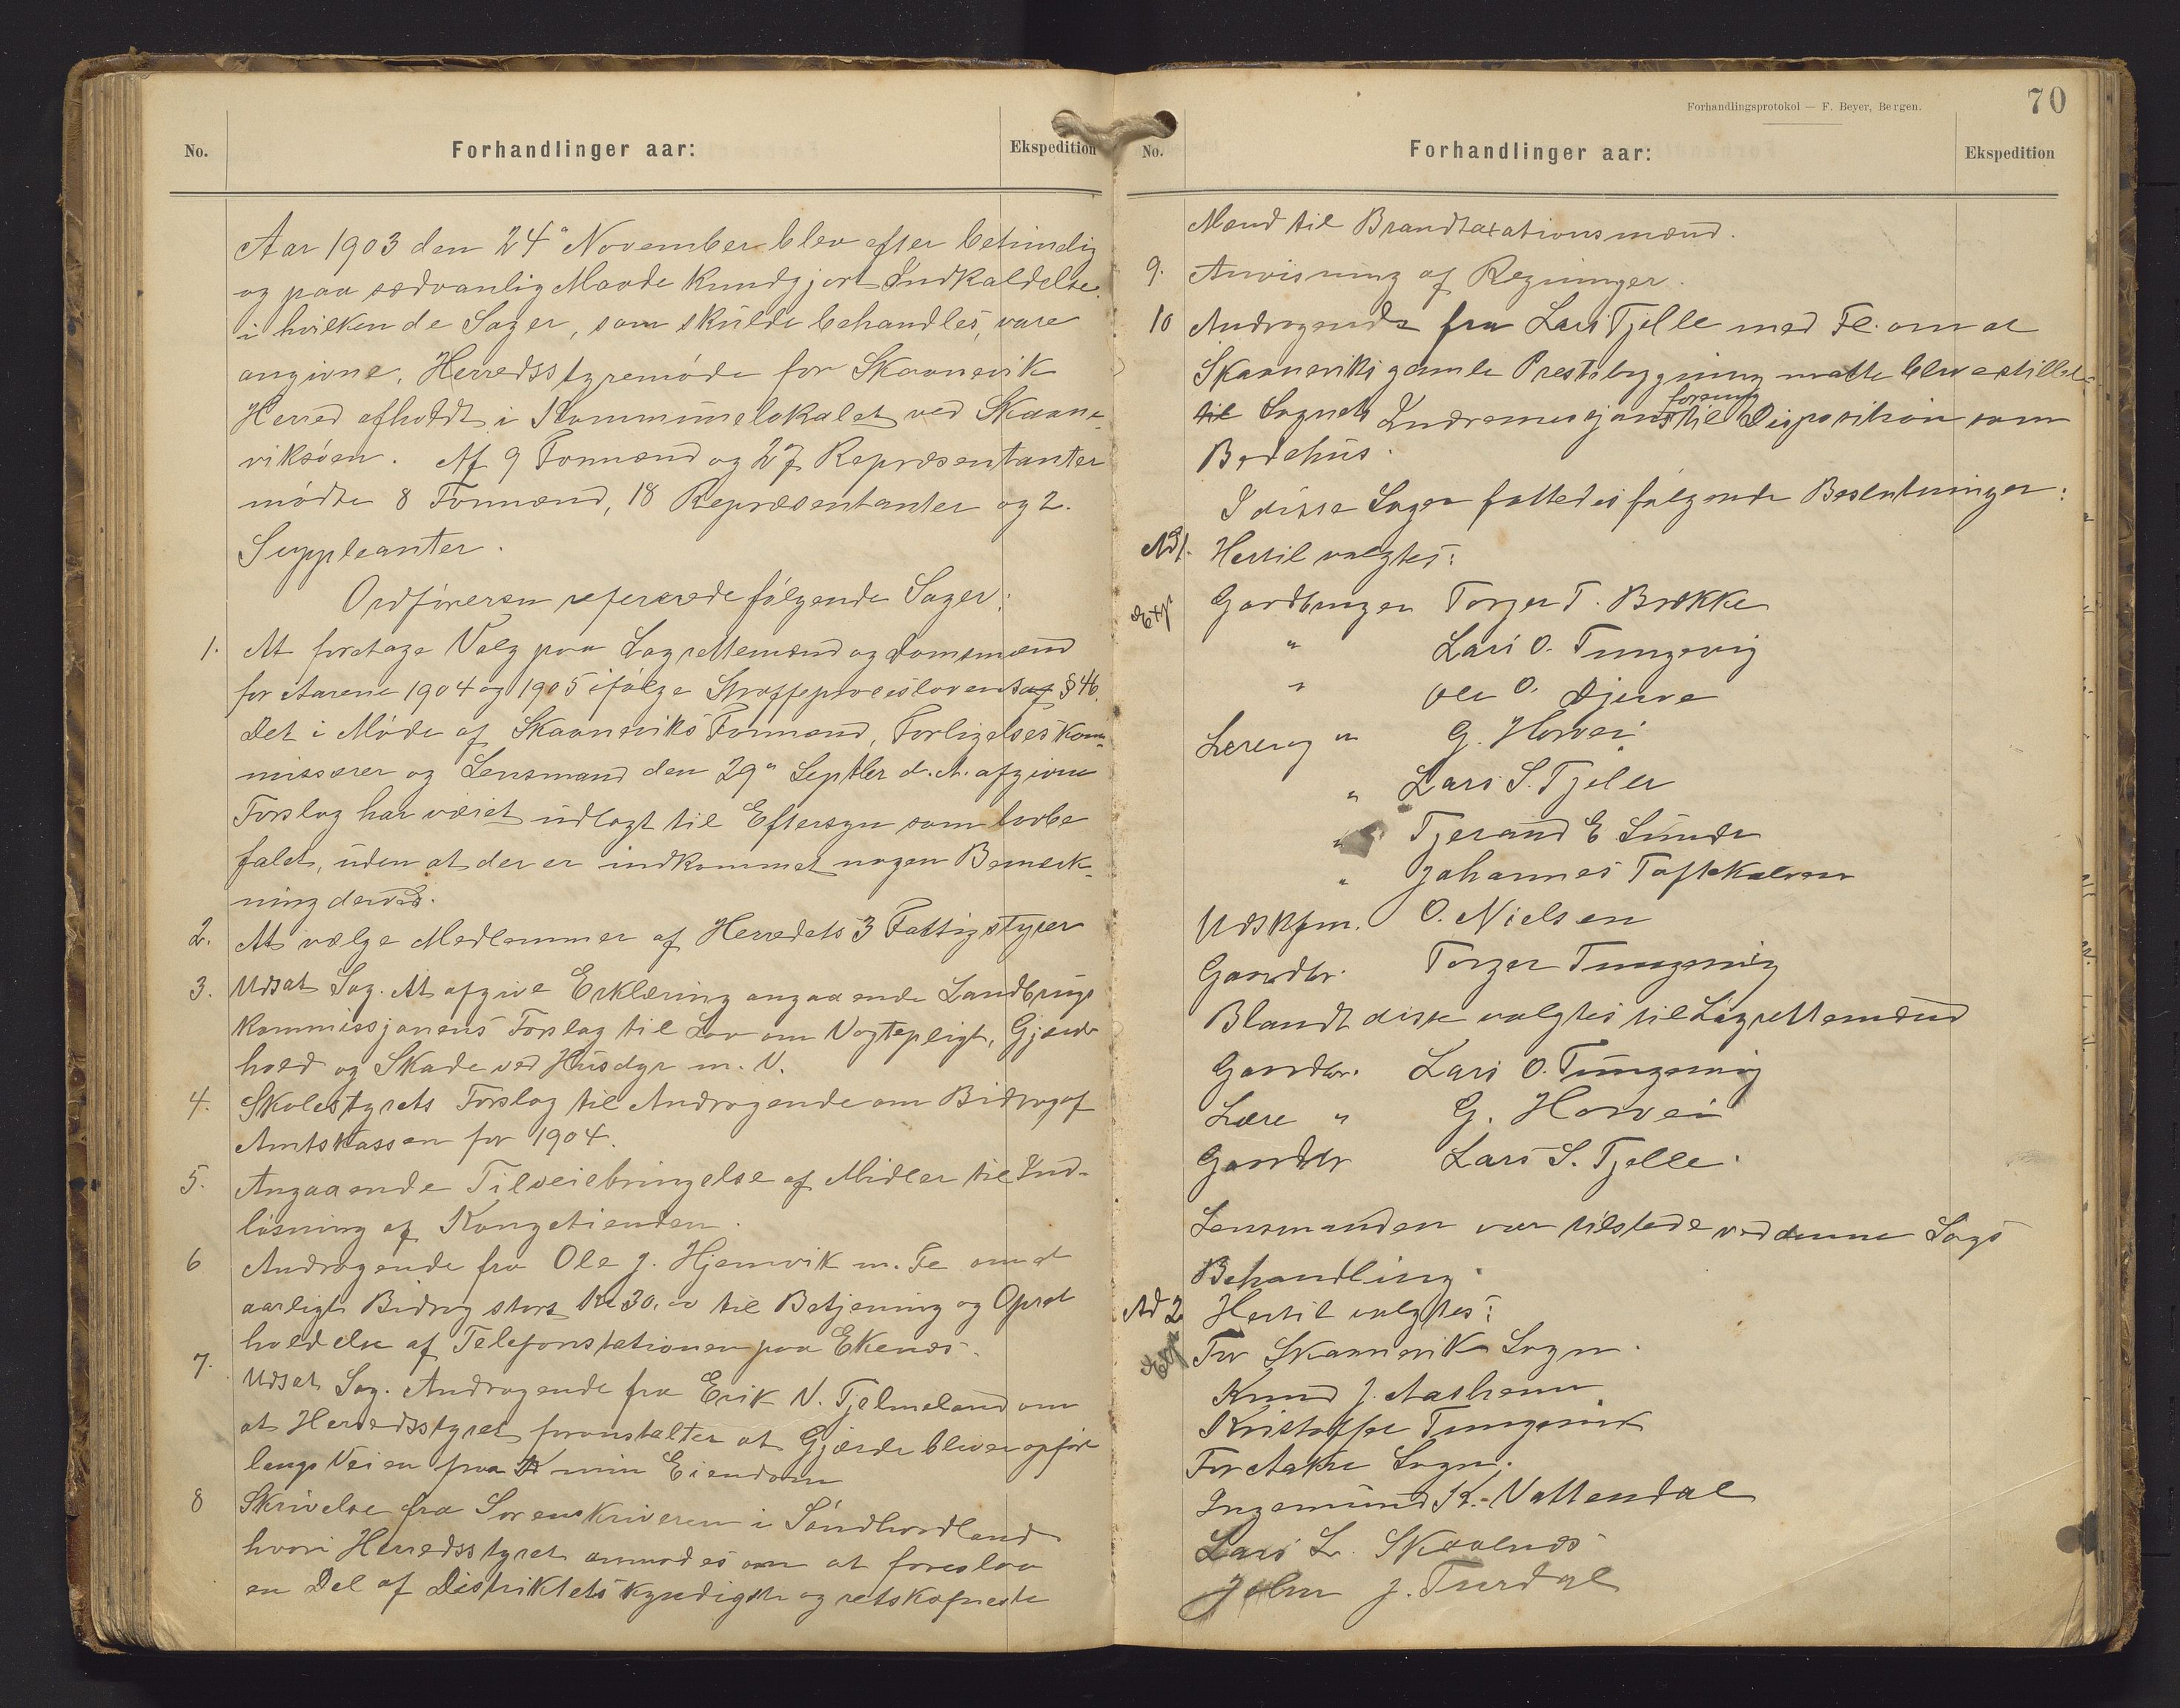 No.
Forhandlinger aar:
Ekspedition
Aar 1903 den 24' November blev efter betimelig
og paa sædvanlig Maade kundgjort Indkaldelse
i hvilken de Sager, som skulde behandles, vare
angivne, Herredsstyremøde for Skaanevik
Herred afholdt i Kommunelokalet ved Skaane-
viksøen. Af 9 Formænd og 27 Repræsentanter
mødte 8 Formænd, 18 Repræsentanter og 2.
Suppleanter.
Ordføreren refererede følgende Sager:
1. At foretage Valg paa Lagrettemænd og Domsmænd
for Aarene 1904 og 1905 ifølge Straffeproceslovens § 46.
Det i Møde af Skaaneviks Formænd, Forligelseskom-
missærer og Lensmand den 29' Septbr d. A. afgivne
Forslag har været udlagt til Eftersyn som lovbe
falet, uden at der er indkommet nogen Bemærk-
ning derved.
2. At vælge Medlemmer af Herredets 3 Fattigstyrer
3. Udsat Sag. At afgive Erklæring angaaende Landbrugs
kommissjonens Forslag til Lov om Vogtepligt, Gjærde
hold og Skade ved Husdyr m. V.
4. Skolestyrets Forslag til Andragende om Bidrag af
Amtskassen for 1904.
5. Angaaende Tilveiebringelse af Midler til Ind-
løsning af Kongetienden.
6 Andragende fra Ole J. Hjemvik m. Fl om et
aarligt Bidrag stort Kr 30.00 til Betjening og Opret
holdelse af Telefonstationen paa Ekenæs.
7. Udsat Sag. Andragende fra Erik N. Tjelmeland om
at Herredsstyret foranstalter at Gjærde bliver opført
langs Veien paa min Eiendom
8 Skrivelse fra Sorenskriveren i Søndhordland
hvori Herredsstyret anmodes om at foreslaa
en Del af Distriktets kyndigste og retskafneste
Forhandlingsprotokol — F. Beyer, Bergen.
70
No.
Forhandlinger aar:
Ekspedition
Mænd til Brandtaxationsmænd.
9. Anvisning af Regninger.
10 Andragende fra Lars Tjelle med Fl. om at
Skaaneviks gamle Prestebygning maatte blive stillet
forening
til Sognets Indremissjons til Disposition som
Bedehus.
I disse Sager fattedes følgende Beslutninger:
Ad 1. Hertil valgtes:
Exp Gaardbruger Torger T. Brekke
" Lars O. Tungesvig
" Ole O. Djuve
Lærer og " G. Horvei
" Lars S. Tjelle
" Tjerand E Sunde
" Johannes Toftekalven
Udskfm. O. Nielsen
Gaardbr. Torger Tungesvig
Blandt disse valgtes til Lagrettemænd
Gaardbr. Lars O. Tungesvig
Lære " G. Horvei
Gaardbr Lars S. Tjelle.
Lensmanden var tilstede ved denne Sags
Behandling.
Ad 2 Hertil valgtes:
Exp For Skaanevik Sogn.
Knud J. Aasheim
Kristoffer Tungesvik
For Aakre Sogn.
Ingemund K. Vattendal
Lars L. Skaalnæs
John J. Turdal